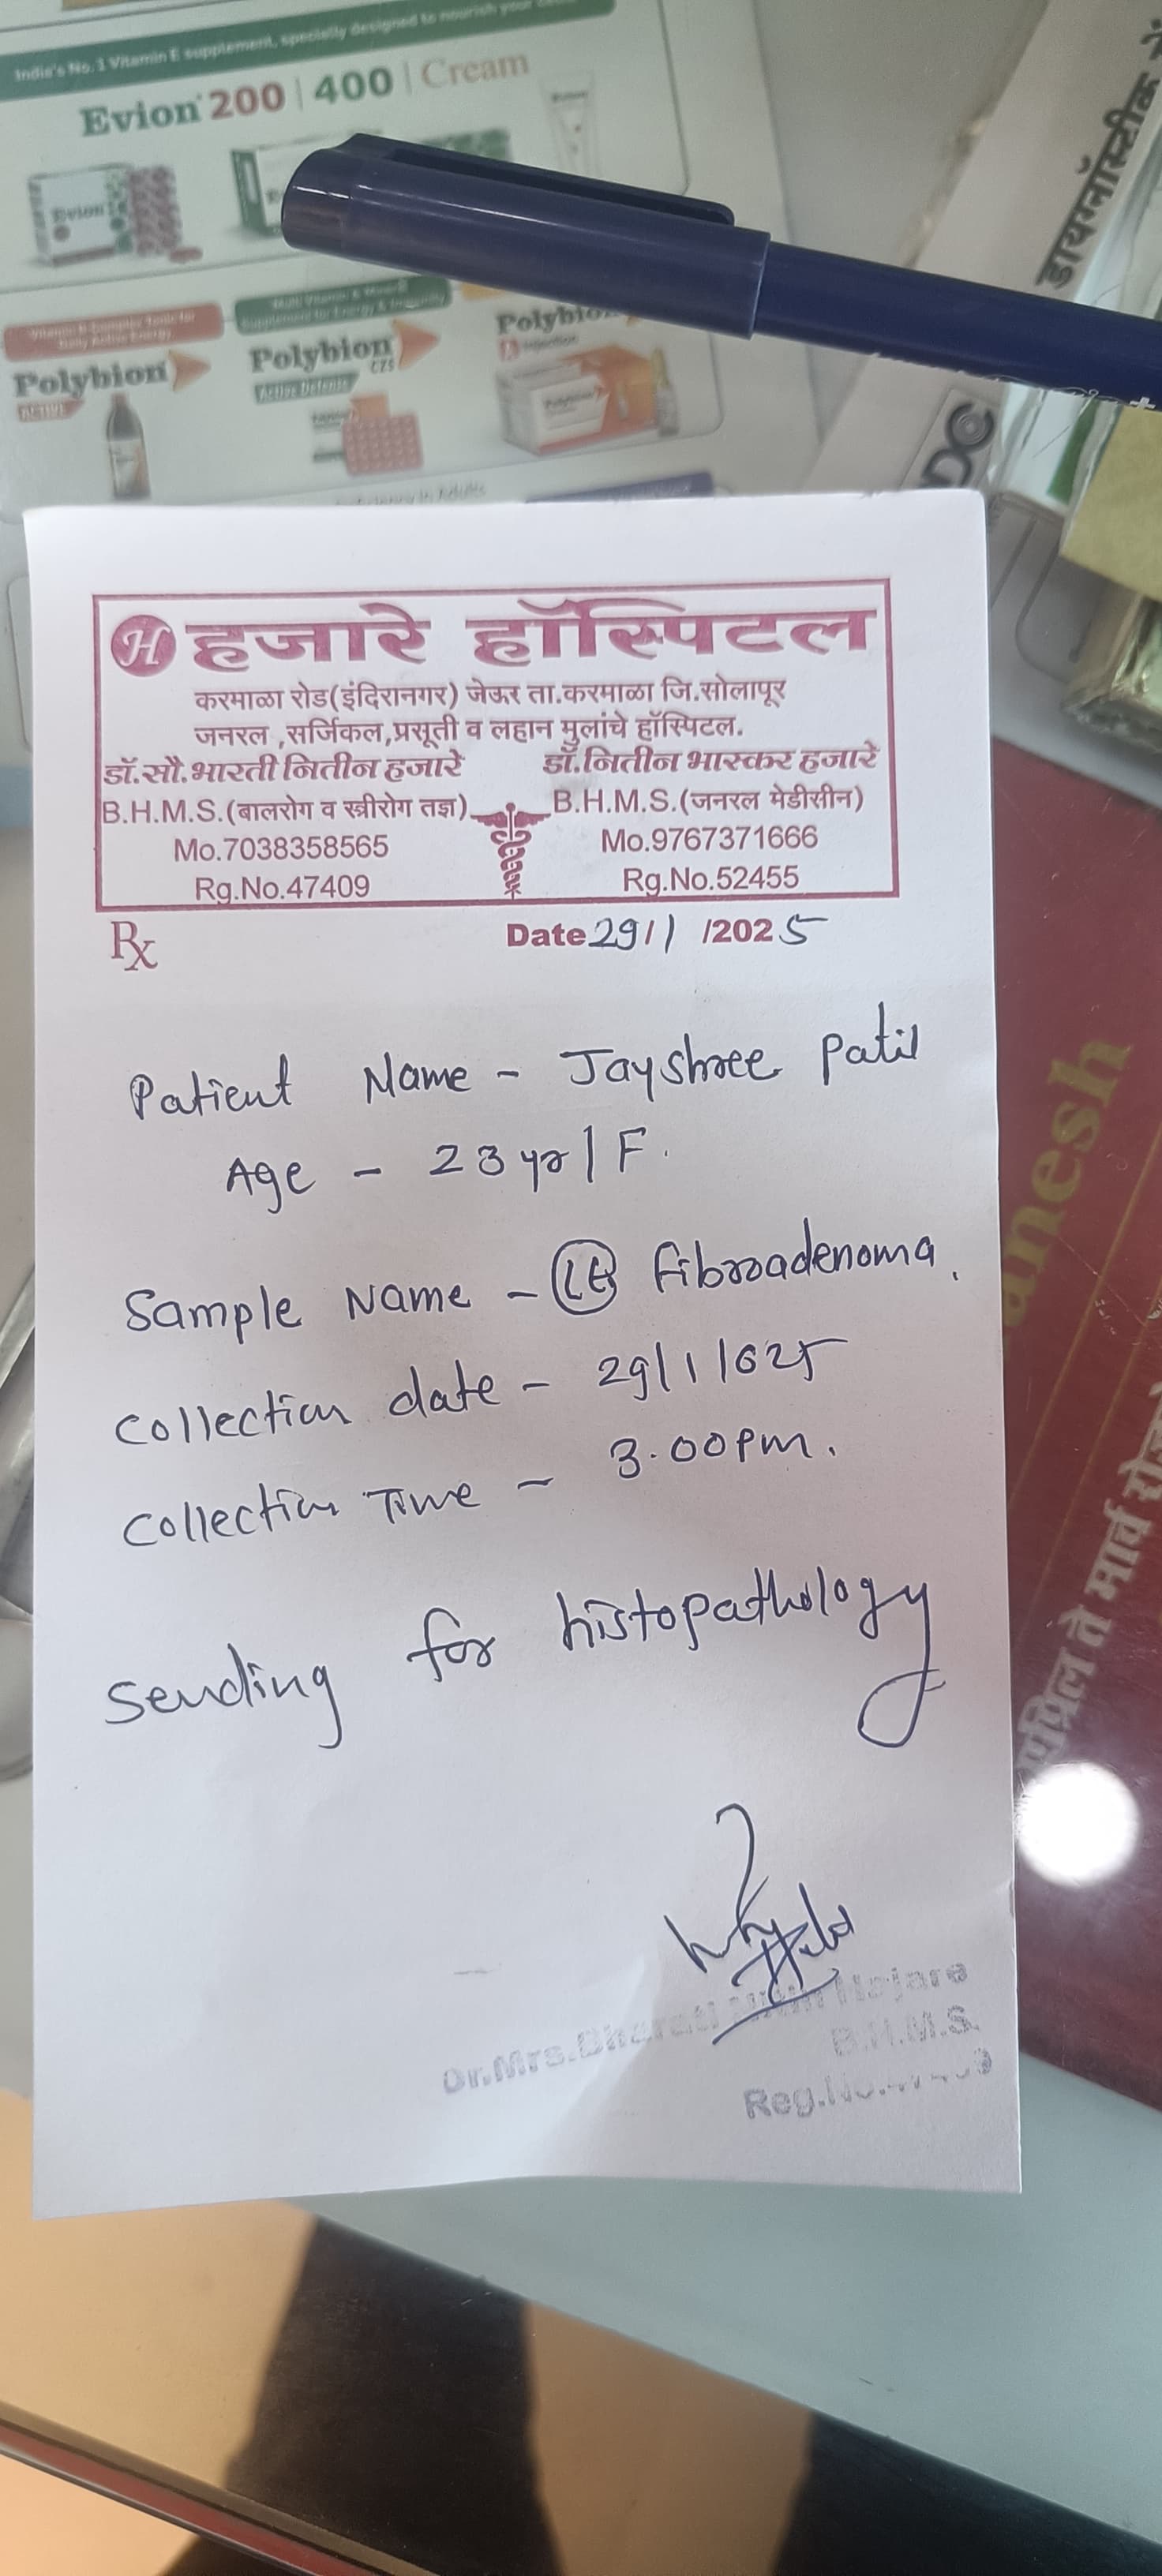 India's No.1 Vitamin E supplement, specially designed to nourish your
Evion 200 | 400 | Cream
Evion
Vitamin B-Complex Tonic for
Daily Active Energy
Polybion
ACTIVE
Supplement for Energy & Immunity
Polybion
CZS
Active Defense
Polybion
Injection
डायग्नॉस्टीक
DC
H हजारे हॉस्पिटल
करमाळा रोड(इंदिरानगर) जेऊर ता.करमाळा जि.सोलापूर
जनरल ,सर्जिकल,प्रसूती व लहान मुलांचे हॉस्पिटल.
डॉ.सौ.भारती नितीन हजारे डॉ.नितीन भास्कर हजारे
B.H.M.S.(बालरोग व स्त्रीरोग तज्ञ) B.H.M.S.(जनरल मेडीसीन)
Mo.7038358565 Mo.9767371666
Rg.No.47409 Rg.No.52455
Rx Date 29/1 /2025
Patient Name - Jayshree Patil
Age - 23 yr / F.
Sample Name - Fibroadenoma.
Collection date - 29/1/025
Collection Time - 3.00pm.
Sending for histopathology
Dr.Mrs.Bharati Nitin Hajare
B.H.M.S.
Reg.No.
anesh
एप्रिल ते मार्च